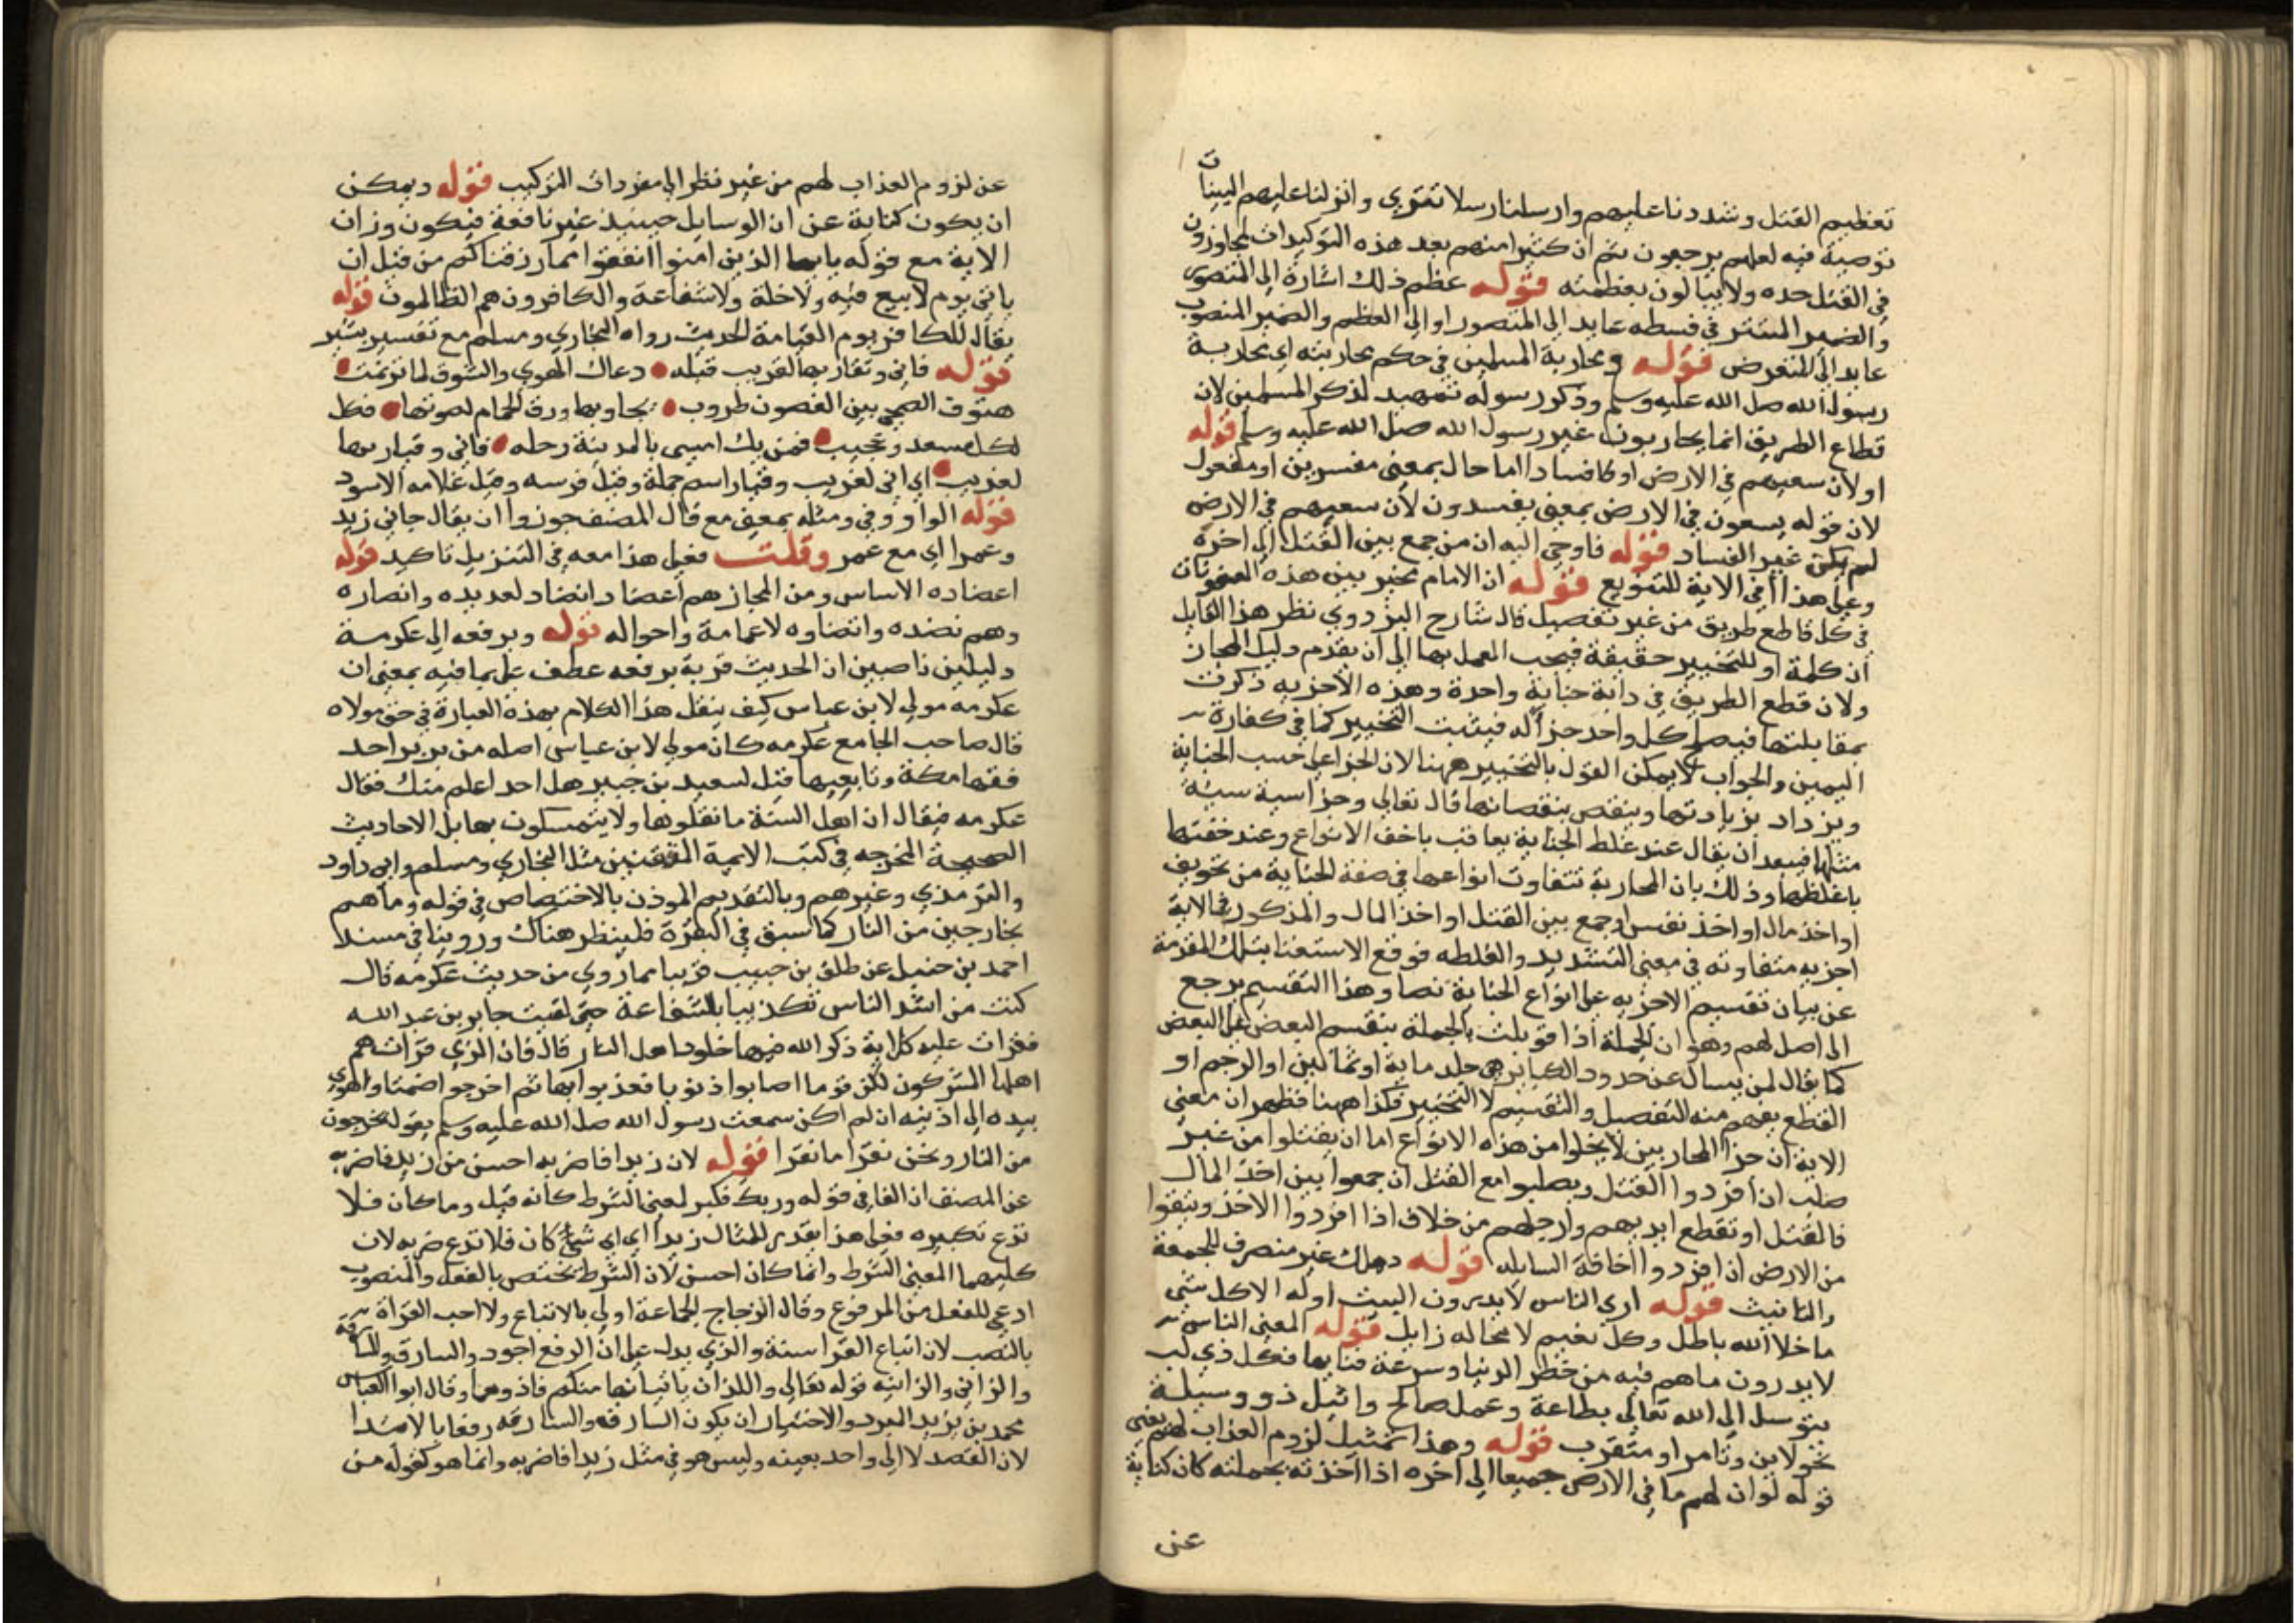 تعظيم القتل وشددنا عليهم وارسلنا رسلا تقوي وانزلنا عليهم البينات
توصية فيه لعلهم يرجعون ثم ان كثيرا منهم بعد هذه التوكيدات لمجاوزون
في القتل حده ولا يبالون بعظمته قوله عظم ذلك اشارة الى المنصوص
والضمير المستتر في قسطه عايد الى المنصور او الى العظم والضمير المنصوب
عايد الى المتعرض قوله ومحاربة المسلمين في حكم محاربته اي محاربة
رسول الله صلى الله عليه وسلم وذكر رسوله تمهيد لذكر المسلمين لان
قطاع الطريق انما يحاربون غير رسول الله صلى الله عليه وسلم قوله
او لان سعيهم في الارض او كا فسادا اما حال بمعنى مفسرين او مفعول
لان قوله يسعون في الارض بمعنى يفسدون لان سعيهم في الارض
لم يكن غير الفساد قوله فاوحي اليه ان من جمع بين القتل الى اخره
وعلى هذا اافي الاية للتنويع قوله ان الامام مخير بين هذه العقوبات
في كل قاطع طريق من غير تفصيل قال شارح البزدوي نظر هذا القايل
ان كلمة او للتخيير حقيقة فيجب العمل بها الى ان يقوم دليل المجاز
ولان قطع الطريق في ذاته جناية واحدة وهذه الاجزية ذكرت
بمقابلتها فيصلح كل واحد جزا له فيثبت التخيير كما في كفارة
اليمين والجواب لا يمكن القول بالتخيير ههنا لان الجزا على حسب الجناية
ويزداد بزيادتها وينقص بنقصانها قال تعالى وجزا سية سيئة
مثلها فيبعد ان يقال عند غلظ الجناية يعاقب باخف الانواع وعند خفتها
باغلظها وذلك بان المحاربة تتفاوت انواعها في صفة الجناية من تخويف
او اخذ مال او اخذ نفس او جمع بين القتل او اخذ المال والمذكور في الاية
اجزيه متفاوته في معنى التشديد والغلطه فوقع الاستغنا بتلك المقدمة
عن بيان تقسيم الاجزيه على انواع الجناية نصا وهذا التقسيم يرجع
الى اصل لهم وهو ان الجملة اذا قوبلت بالجملة ينقسم البعض على البعض
كما يقال لمن يسال عن حدود الكباير هي جلد ماية او ثمانين او الرجم او
القطع يفهم منه التفصيل والتقسيم لا التخيير فكذا ههنا فظهر ان معنى
الاية ان جزا المحاربين لا يخلوا من هذه الانواع اما ان يقتلوا من غير
صلب ان افردوا القتل ويصلبوا مع القتل ان جمعوا بين اخذ المال
فالقتل او تقطع ايديهم وارجلهم من خلاف اذا افردوا الاخذ وينفوا
من الارض اذا افردوا اخافة السابله قوله دهلك غير منصرف للجمعة
والتانيث قوله ارى الناس لا يدرون البيت اوله الا كل شي
ما خلا الله باطل وكل نعيم لا محاله زايل قوله المعنى الناس
لا يدرون ما هم فيه من خطر الدنيا وسرعة فنايها فكل ذي لب
يتوسل الى الله تعالى بطاعة وعمل صالح واثيل ذو وسيلة
نحو لابن وتامر او متقرب قوله وهذا تمثيل لزوم العذاب لهم يعني
قوله لو ان لهم ما في الارض جميعا الى اخره اذا اخذته بجملته كان كناية
عن
عن لزوم العذاب لهم من غير نظر الى مفردات التركيب قوله ويمكن
ان يكون كناية عن ان الوسايل حينيذ غير نافعة فيكون وزان
الاية مع قوله يايها الذين امنوا انفقوا مما رزقناكم من قبل ان
ياتي يوم لا بيع فيه ولا خلة ولا شفاعة والكافرون هم الظالمون قوله
يقال للكافر يوم القيامة الحديث رواه البخاري ومسلم مع تفسير يسير
قوله فاني وتقار بها لغريب قبله دعاك الهوي والشوق لما ترنمت
هتوف الضحى بين الغصون طروب تجاوبها ورق الحمام لصوتها فكل
لكل مسعد ومجيب فمن يك امسى بالمدينة رحله فاني وقيار بها
لغريب اي اني لغريب وقيار اسم جملة وقيل فرسه وقيل غلامه الاسود
قوله الواو وفي ومثله بمعنى مع قال المصنف جوزوا ان يقال جاني زيد
وعمرا اي مع عمر وقلت فعلى هذا معه في التنزيل تاكيد قوله
اعضاده الاساس ومن المجاز هم اعضاد انضاد لعديده وانصاره
وهم نضده وانضاوه لاعمامة واحواله قوله ويرفعه الى عكرمة
دليلين ناصبين ان الحديث قرية يرفعه عطف على بما فيه بمعنى ان
عكرمه مولى لابن عباس كيف ينقل هذا الكلام بهذه العبارة في حق مولاه
قال صاحب الجامع عكرمه كان مولى لابن عباس اصله من بربر احد
فقها مكة وتابعيها قيل لسعيد بن جبير هل احد اعلم منك فقال
عكرمه فيقال ان اهل السنة ما نقلوها ولا يتمسكون بها بل الاحاديث
الصحيحة المخرجه في كتب الايمة المتقنين مثل البخاري ومسلم وابي داود
والترمذي وغيرهم وبالتقديم الموذن بالاختصاص في قوله وما هم
بخارجين من النار كما سبق في البقرة فلينظر هناك وروينا في مسند
احمد بن حنبل عن طلق بن حبيب قريبا مما روي من حديث عكرمه قال
كنت من اشد الناس تكذيبا بالشفاعة حتى لقيت جابر بن عبد الله
فقرات عليه كل اية ذكر الله فيها خلود اهل النار قال فان الذي قرات هم
اهلها المشركون لكن قوما اصابوا ذنوبا فعذبوا بها ثم اخرجوا صمتا واهوي
بيده الى اذنيه ان لم اكن سمعت رسول الله صلى الله عليه وسلم يقول يخرجون
من النار ونحن نقرا ما نقرا قوله لان زيدا فاضربه احسن من زيد فاضربه
عن المصنف ان الفا في قوله وربك فكبر لمعنى الشرط كانه قيل وما كان فلا
تدع تكبيره فعلى هذا يقدر للمثال زيدا اي اي شئ كان فلا تدع ضربه لان
كليهما المعنى الشرط وانما كان احسن لان الشرط يختص بالفعل والمنصوب
ادعى للفعل من المرفوع وقال الزجاج الجماعة اولى بالاتباع ولا احب القراة
بالنصب لان اتباع القرا سنة والذي يدل على ان الرفع اجود والسارق والسارقة
والزاني والزانيه قوله تعالى واللذان ياتيانها منكم فاذوهما وقال ابوا العباس
محمد بن يزيد المبرد والاختيار ان يكون السارقه والسارقه رفعا بالابتدا
لان القصد لا الى واحد بعينه وليس هو في مثل زيدا فاضربه وانما هو كقوله من